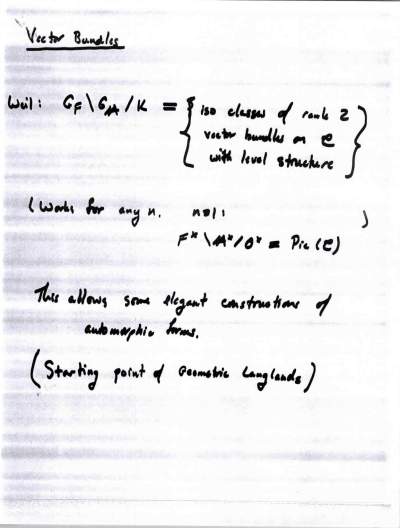 Vector Bundles
Weil: G_F \ G_A / K = { iso classes of rank 2
vector bundles on C
with level structure }
(Works for any n. n=1: )
F^x \ A^x / O^x = Pic (C)
This allows some elegant constructions of
automorphic forms.
(Starting point of Geometric Langlands)